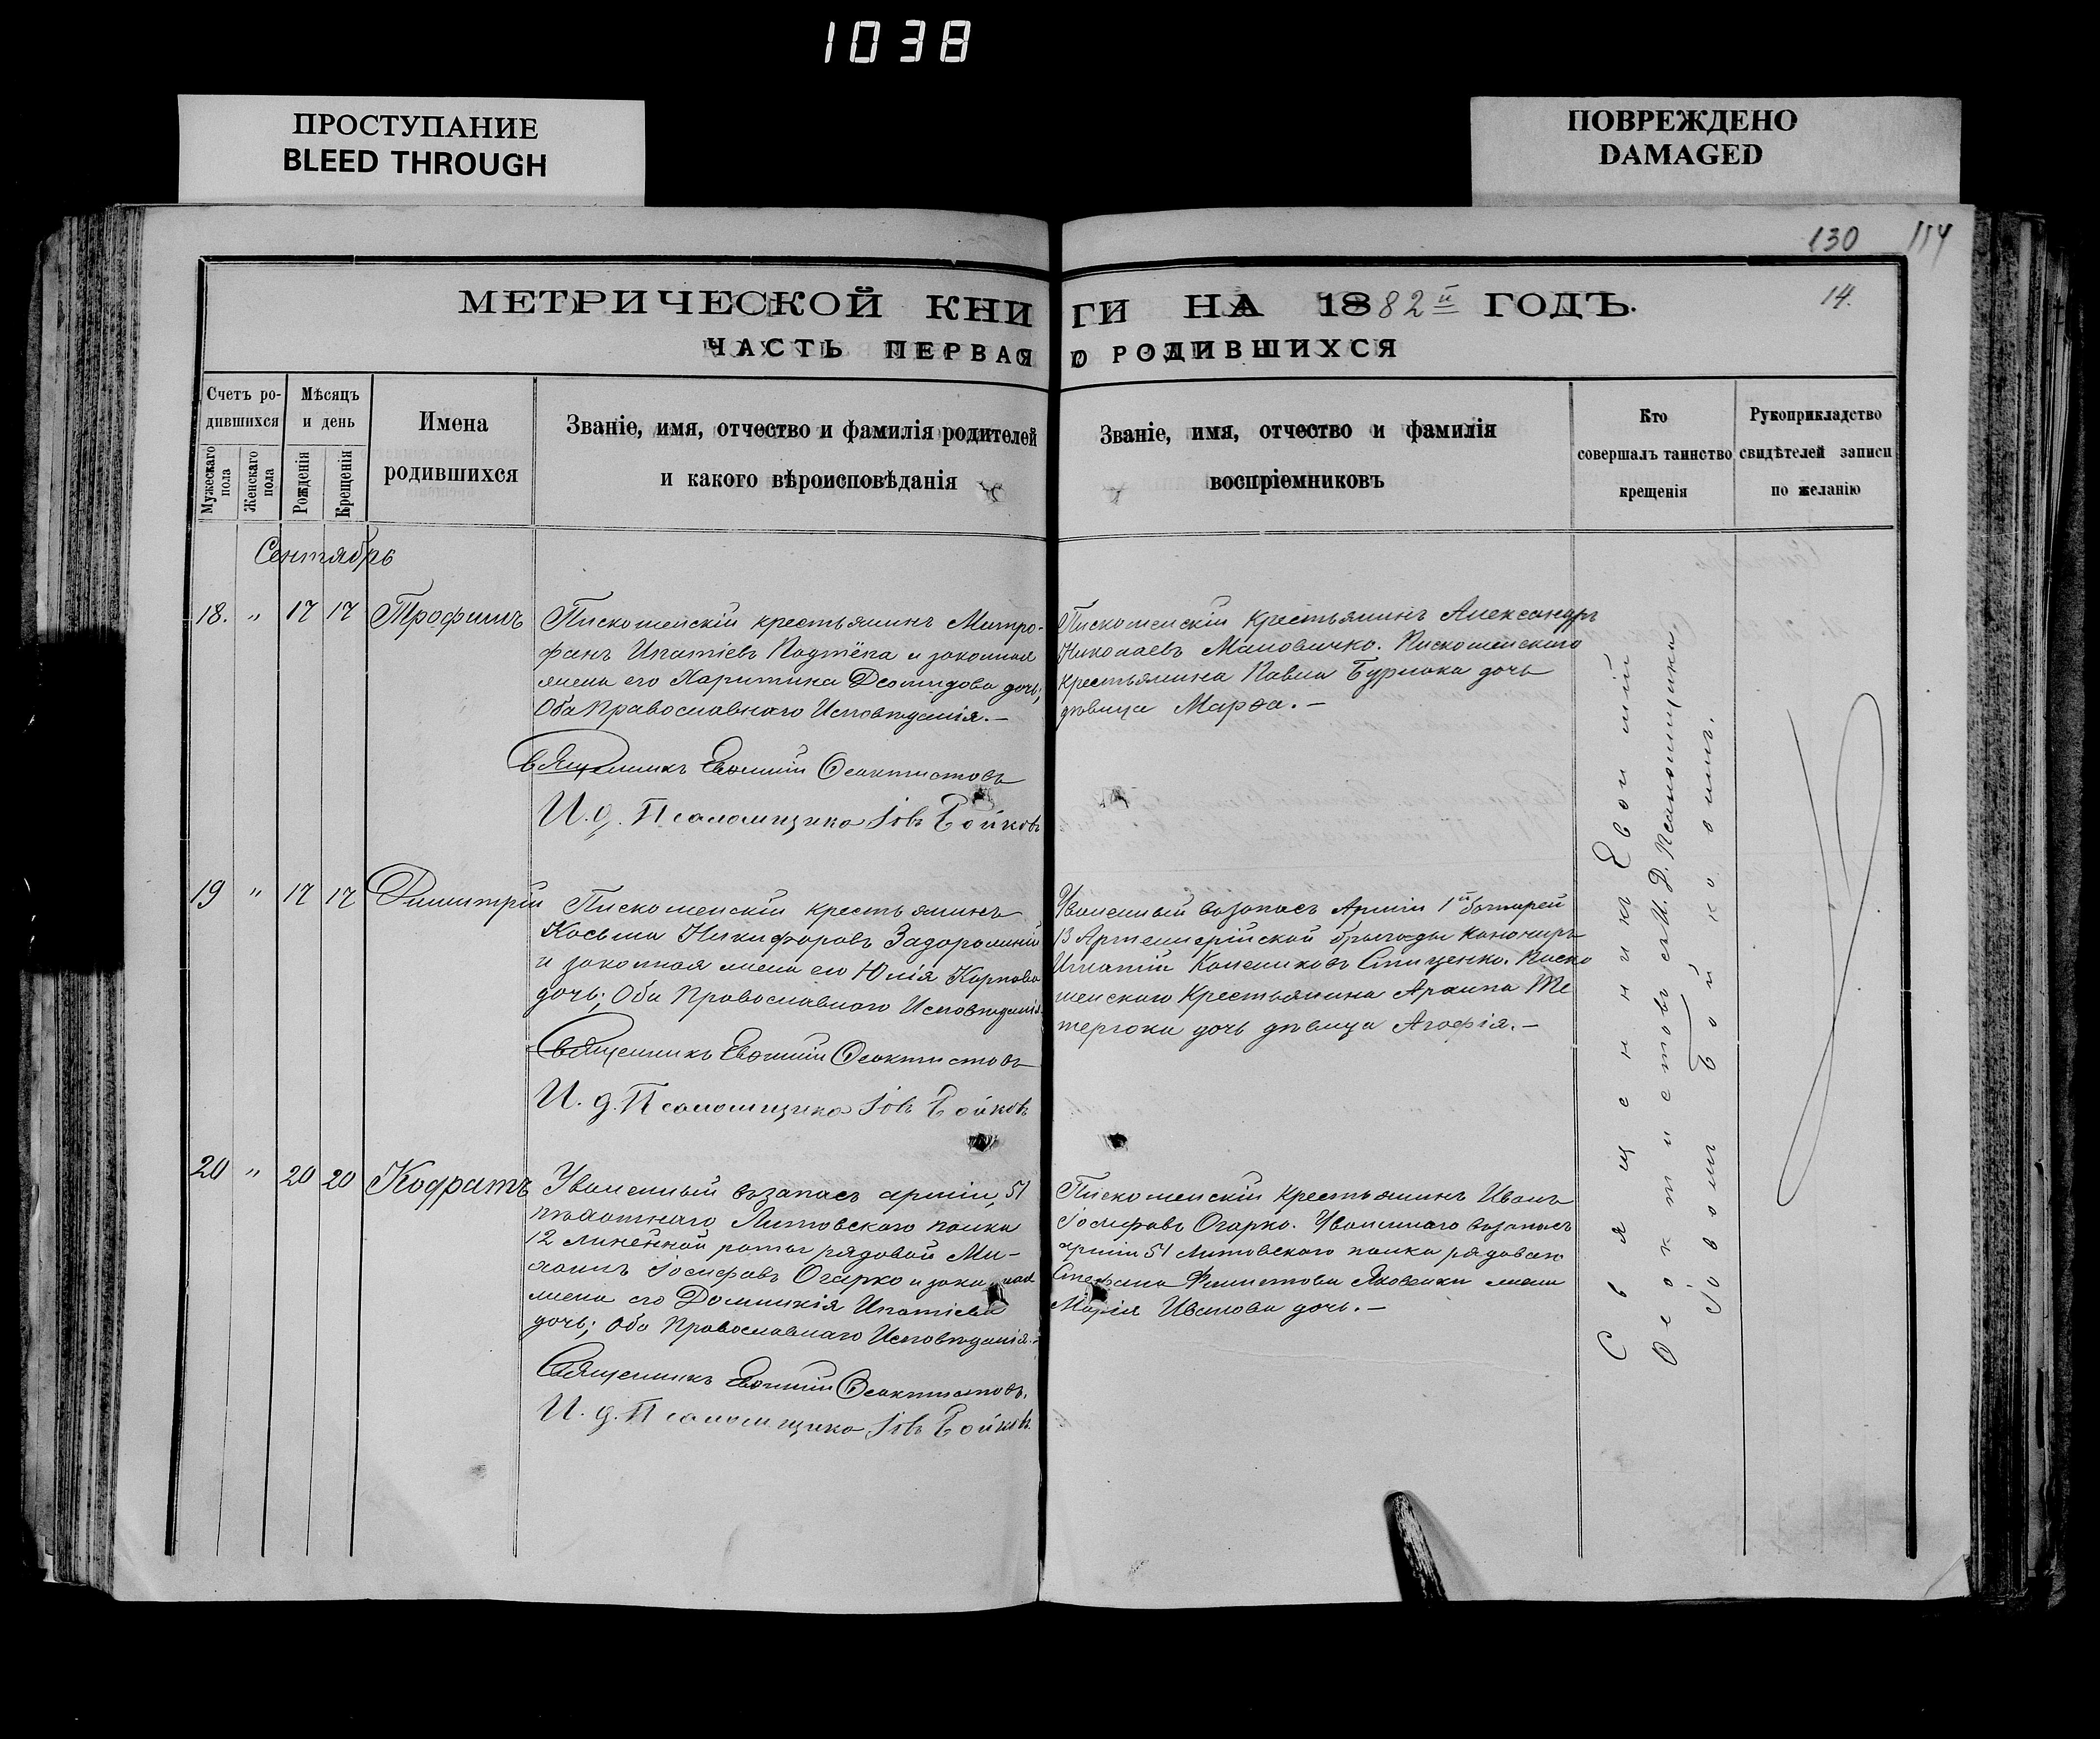 1038
ПРОСТУПАНИЕ
BLEED THROUGH
ПОВРЕЖДЕНО
DAMAGED
130 114
МЕТРИЧЕСКОЙ КНИГИ НА 1882й ГОДЪ.
14.
ЧАСТЬ ПЕРВАЯ О РОДИВШИХСЯ
Счетъ родившихся
Мужескаго пола
Женскаго пола
Мѣсяцъ и день
Рожденія
Крещенія
Имена
родившихся
Званіе, имя, отчество и фамилія родителей
и какого вѣроисповѣданія
Званіе, имя, отчество и фамилія
воспріемниковъ
Кто
совершалъ таинство
крещенія
Рукоприкладство
свидѣтелей записи
по желанію
Сентябрь
18. " 17 17 Трофимъ
Пискошейскій крестьянинъ Митро-
фанъ Игнатіевъ Подтёпа и законная
жена его Харитина Деомидова дочь;
Оба Православнаго Исповѣданія.-
Священникъ Евѳимій Ѳеоктистовъ
И. д. Псаломщика Іовъ Бойковъ
Пискошейскій крестьянинъ Александръ
Николаевъ Мановичко. Пискошейскаго
крестьянина Павла Бурлака дочь
дѣвица Марѳа.-
19 " 17 17 Димитрій
Пискошейскій крестьянинъ
Косьма Никифоровъ Задорожній
и законная жена его Юлія Карпова
дочь; Оба Православнаго Исповѣданія.
Священникъ Евѳимій Ѳеоктистовъ
И. д. Псаломщика Іовъ Бойковъ
Уволенный възапасъ Арміи 1й батареи
13 Артеллерійской бригады канониръ
Игнатій Стиценко. Писко
шейскаго Крестьянина Архипа Те
терюка дочь дѣвица Агафія.-
20 " 20 20 Кодратъ
Уволенный възапасъ арміи, 51
пѣхотнаго Литовскаго полка
12 линейной роты рядовой Ми-
хаилъ Іосифовъ Огарко и законная
жена его Домникія Игнатіева
дочь; Оба Православнаго Исповѣданія.-
Священникъ Евѳимій Ѳеоктистовъ.
И. д. Псаломщика Іовъ Бойковъ.
Пискошейскій крестьянинъ Иванъ
Іосифовъ Огарко. Уволеннаго възапасъ
арміи 51 Литовскаго полка рядоваго
Стефана Яковенки жена
Марія Иванова дочь.-
Священникъ Евѳимій
Ѳеоктистовъ съ И. Д. Псаломщика
Іовомъ Бойковымъ.